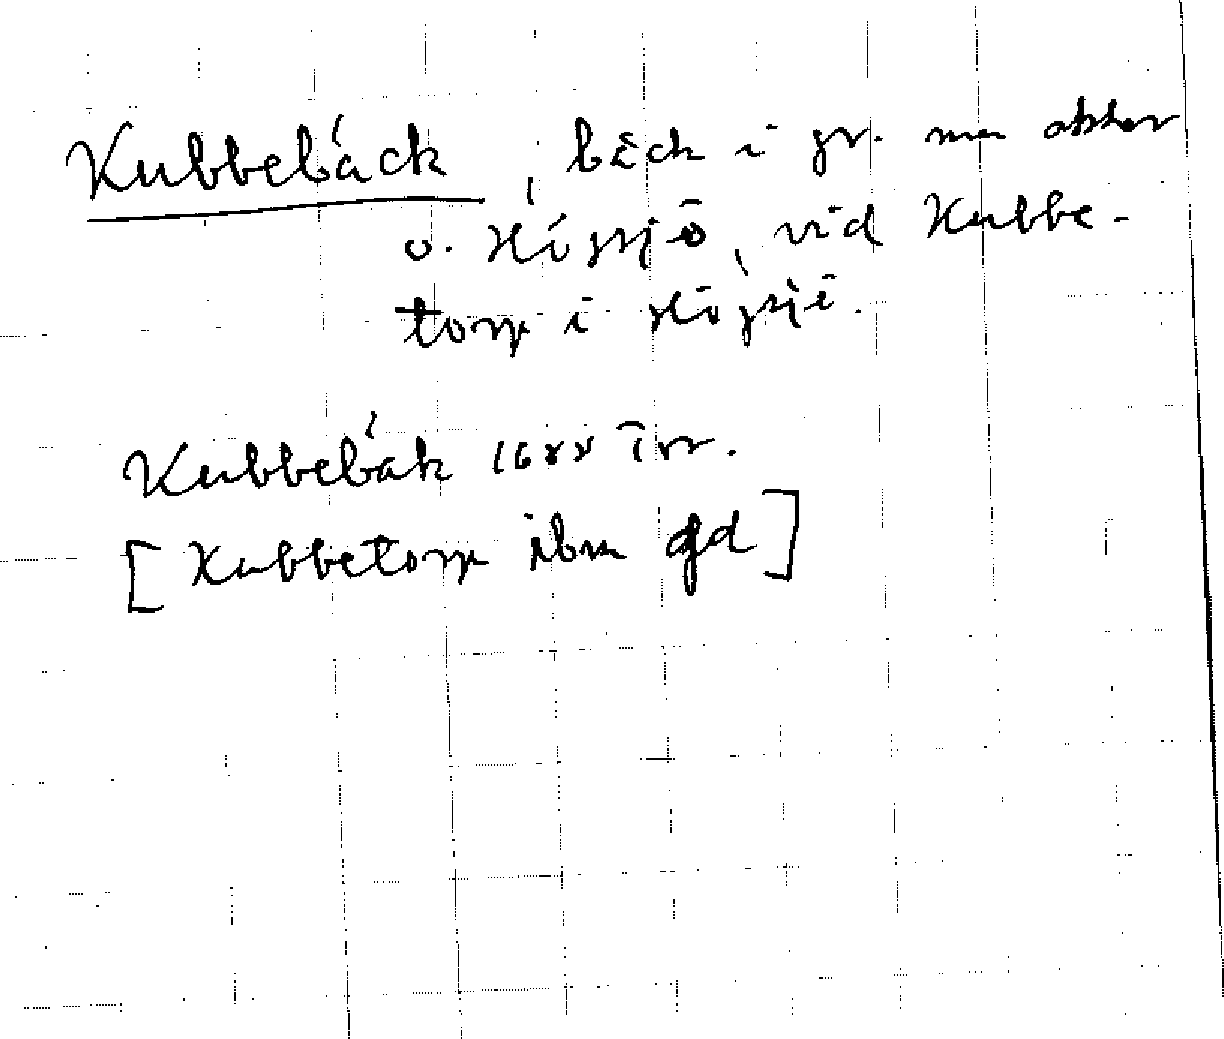 Kubbebäck, bäck i gr. m
o. Högsjö, vid Kubbe-
torp i Högsjö.
Kubbebäk 1688
[Kubbetorp ibm gd]